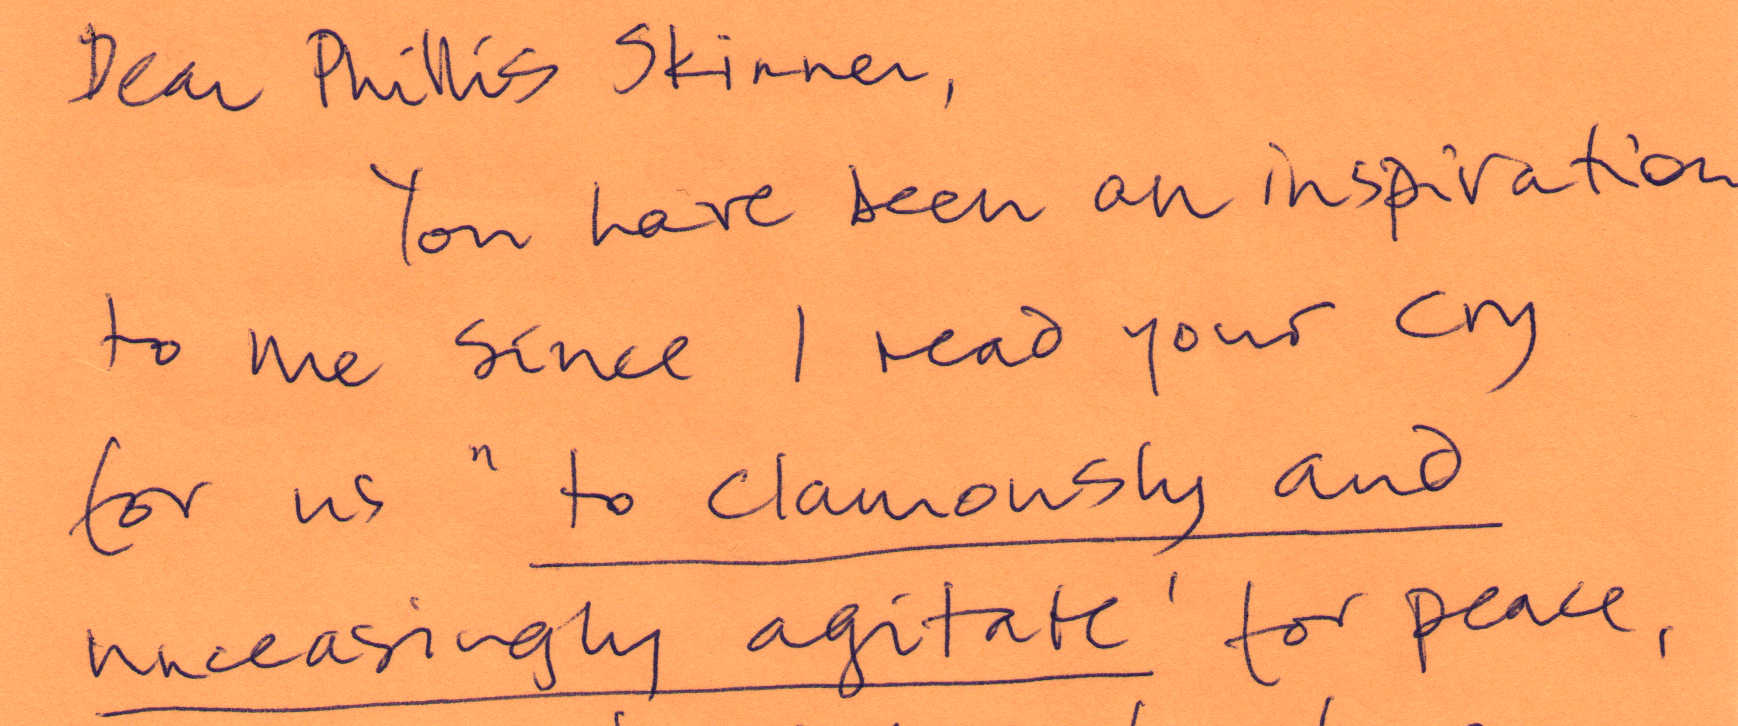 Dear Phillis Skinner,
You have been an inspiration
to me since I read your cry
for us "to clamously and
unceasingly agitate' for peace,